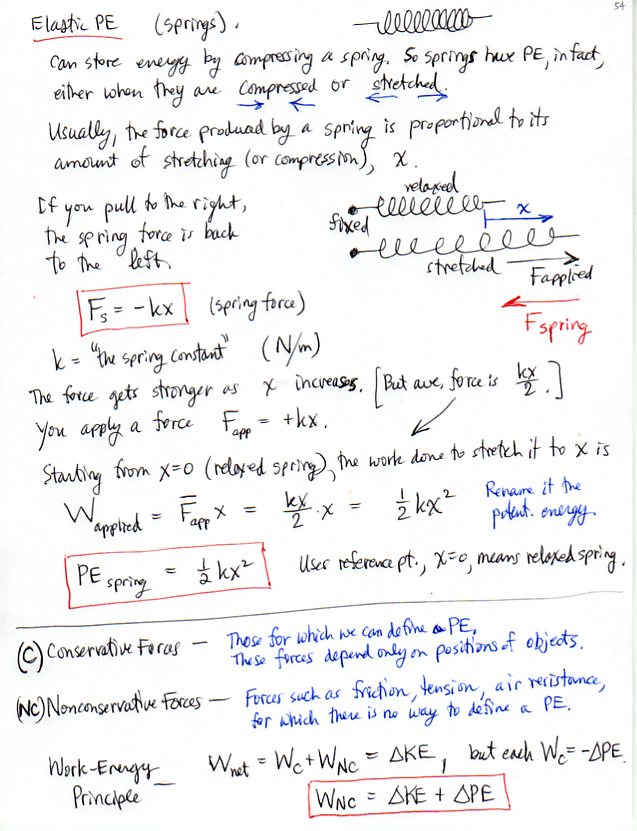 54
Elastic PE (springs).
Can store energy by compressing a spring. So springs have PE, in fact,
either when they are compressed or stretched.
Usually, the force produced by a spring is proportional to its
amount of stretching (or compression), x.
If you pull to the right,
the spring force is back
to the left.
relaxed
x
fixed
stretched
Fapplied
Fspring
Fs = -kx (spring force)
k = "the spring constant" (N/m)
The force gets stronger as x increases. [But ave. force is kx/2.]
You apply a force Fapp = +kx.
Starting from x=0 (relaxed spring), the work done to stretch it to x is
Wapplied = F̅app x = kx/2 · x = ½ kx²
Rename it the
potent. energy.
PEspring = ½ kx²
Uses reference pt., x=0, means relaxed spring.
(C) Conservative Forces — Those for which we can define a PE.
These forces depend only on positions of objects.
(NC) Nonconservative Forces — Forces such as friction, tension, air resistance,
for which there is no way to define a PE.
Work-Energy
Principle —
Wnet = WC + WNC = ΔKE, but each WC = -ΔPE.
WNC = ΔKE + ΔPE